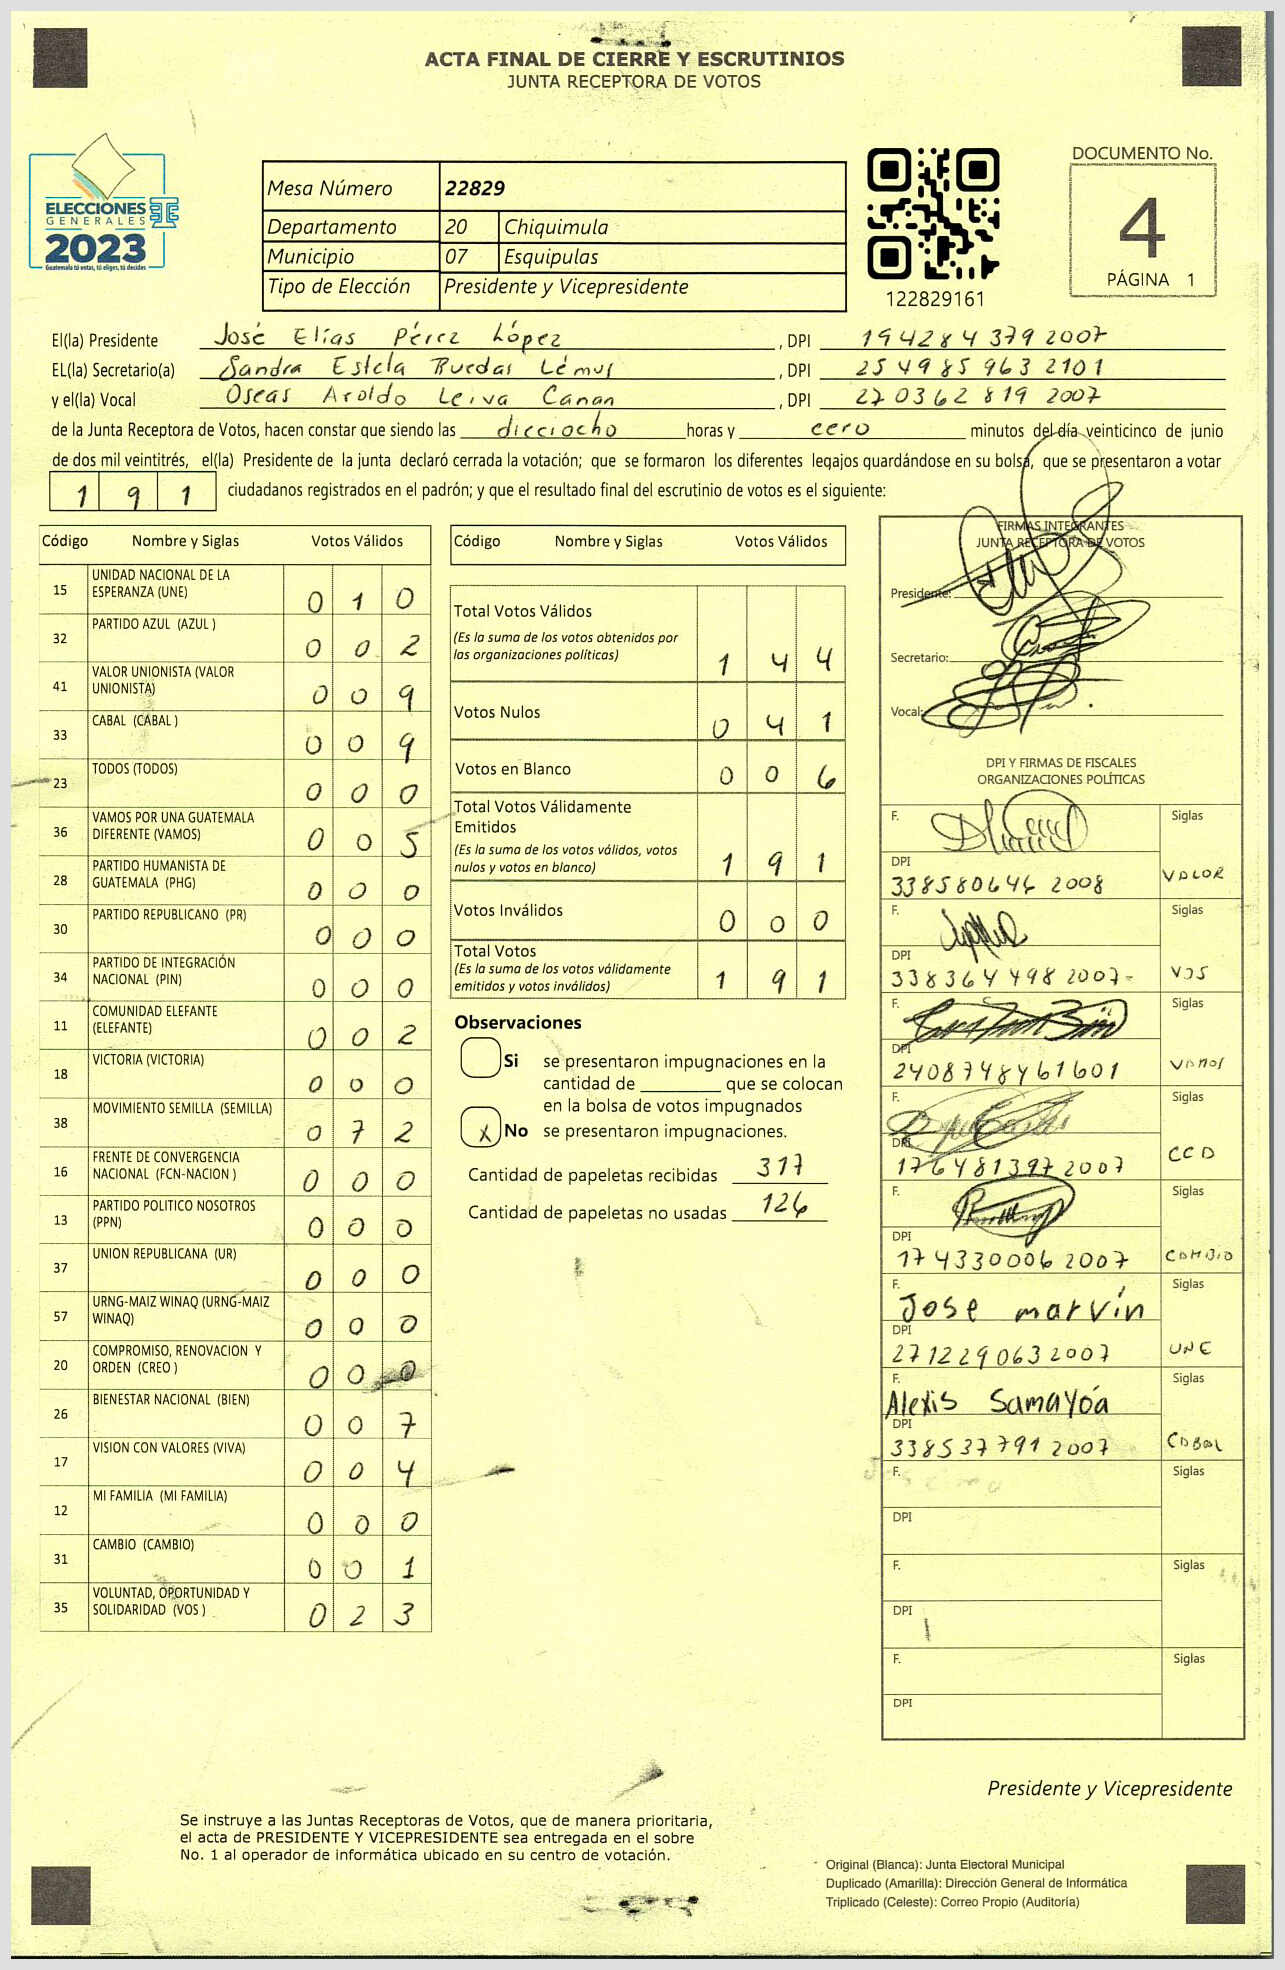 ACTA FINAL DE CIERRE Y ESCRUTINIOS
JUNTA RECEPTORA DE VOTOS
ELECCIONES
GENERALES
2023
Guatemala tú votas, tú eliges, tú decides
Mesa Número 22829
Departamento 20 Chiquimula
Municipio 07 Esquipulas
Tipo de Elección Presidente y Vicepresidente
122829161
DOCUMENTO No.
4
PÁGINA 1
El(la) Presidente José Elías Pérez López , DPI 194284379 2007
EL(la) Secretario(a) Sandra Estela Ruedas Lémus , DPI 254985963 2101
y el(la) Vocal Oseas Aroldo Leiva Canan , DPI 270362819 2007
de la Junta Receptora de Votos, hacen constar que siendo las dieciocho horas y cero minutos del día veinticinco de junio
de dos mil veintitrés, el(la) Presidente de la junta declaró cerrada la votación; que se formaron los diferentes legajos guardándose en su bolsa, que se presentaron a votar
1 9 1 ciudadanos registrados en el padrón; y que el resultado final del escrutinio de votos es el siguiente:
Código Nombre y Siglas Votos Válidos
15 UNIDAD NACIONAL DE LA ESPERANZA (UNE) 0 1 0
32 PARTIDO AZUL (AZUL ) 0 0 2
41 VALOR UNIONISTA (VALOR UNIONISTA) 0 0 9
33 CABAL (CABAL ) 0 0 9
23 TODOS (TODOS) 0 0 0
36 VAMOS POR UNA GUATEMALA DIFERENTE (VAMOS) 0 0 5
28 PARTIDO HUMANISTA DE GUATEMALA (PHG) 0 0 0
30 PARTIDO REPUBLICANO (PR) 0 0 0
34 PARTIDO DE INTEGRACIÓN NACIONAL (PIN) 0 0 0
11 COMUNIDAD ELEFANTE (ELEFANTE) 0 0 2
18 VICTORIA (VICTORIA) 0 0 0
38 MOVIMIENTO SEMILLA (SEMILLA) 0 7 2
16 FRENTE DE CONVERGENCIA NACIONAL (FCN-NACION ) 0 0 0
13 PARTIDO POLITICO NOSOTROS (PPN) 0 0 0
37 UNION REPUBLICANA (UR) 0 0 0
57 URNG-MAIZ WINAQ (URNG-MAIZ WINAQ) 0 0 0
20 COMPROMISO, RENOVACION Y ORDEN (CREO ) 0 0 0
26 BIENESTAR NACIONAL (BIEN) 0 0 7
17 VISION CON VALORES (VIVA) 0 0 4
12 MI FAMILIA (MI FAMILIA) 0 0 0
31 CAMBIO (CAMBIO) 0 0 1
35 VOLUNTAD, OPORTUNIDAD Y SOLIDARIDAD (VOS ) 0 2 3
Código Nombre y Siglas Votos Válidos
Total Votos Válidos
(Es la suma de los votos obtenidos por
las organizaciones políticas) 1 4 4
Votos Nulos 0 4 1
Votos en Blanco 0 0 6
Total Votos Válidamente
Emitidos
(Es la suma de los votos válidos, votos
nulos y votos en blanco) 1 9 1
Votos Inválidos 0 0 0
Total Votos
(Es la suma de los votos válidamente
emitidos y votos inválidos) 1 9 1
Observaciones
Si se presentaron impugnaciones en la
cantidad de ________ que se colocan
en la bolsa de votos impugnados
X No se presentaron impugnaciones.
Cantidad de papeletas recibidas 317
Cantidad de papeletas no usadas 126
FIRMAS INTEGRANTES
JUNTA RECEPTORA DE VOTOS
Presidente:
Secretario:
Vocal:
DPI Y FIRMAS DE FISCALES
ORGANIZACIONES POLÍTICAS
F. Siglas
DPI
338580646 2008 VALOR
F. Siglas
DPI
338364498 2007- VOS
F. Siglas
DPI
2408748461601 VAMOS
F. Siglas
DPI
176481397 2007 CCD
F. Siglas
DPI
174330006 2007 CAMBIO
F. Jose marvin Siglas
DPI
271229063 2007 UNE
F. Alexis Samayóa Siglas
DPI
338537791 2007 CABAL
F. Siglas
DPI
F. Siglas
DPI
F. Siglas
DPI
Presidente y Vicepresidente
Se instruye a las Juntas Receptoras de Votos, que de manera prioritaria,
el acta de PRESIDENTE Y VICEPRESIDENTE sea entregada en el sobre
No. 1 al operador de informática ubicado en su centro de votación.
Original (Blanca): Junta Electoral Municipal
Duplicado (Amarilla): Dirección General de Informática
Triplicado (Celeste): Correo Propio (Auditoría)